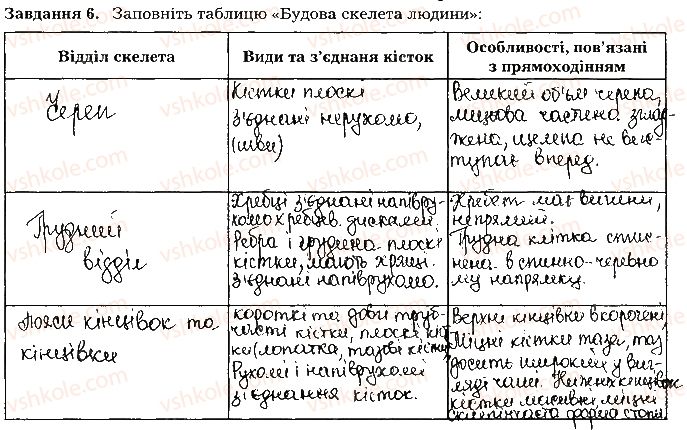 Завдання 6. Заповніть таблицю «Будова скелета людини»:
Відділ скелета
Види та з’єднаня кісток
Особливості, пов’язані
з прямоходінням
Череп
Кістки плоскі
з'єднані нерухомо,
(шви)
Великий об'єм черепа,
лицьова частина зглад-
жена, щелепа не вис-
тупає вперед.
Грудний
відділ
Хребці з'єднані напівру-
хомо хребцев. дисками.
Ребра і грудина плоскі
кістки, мають хрящ.
З'єднані напіврухомо.
Хребет має вигини,
непрямий.
Грудна клітка стис-
нена в спинно-черевно
му напрямку.
Пояси кінцівок та
кінцівки
короткі та довгі труб-
часті кістки, плоскі кіст
ки (лопатка, тазові кістки)
Рухомі і напіврухомі
з'єднання кісток.
Верхні кінцівки вкорочені,
Міцні кістки таза, таз
досить широкий у виг-
ляді чаші. Нижніх кінцівок
кістки масивні, міцні
склепінчаста форма стопи